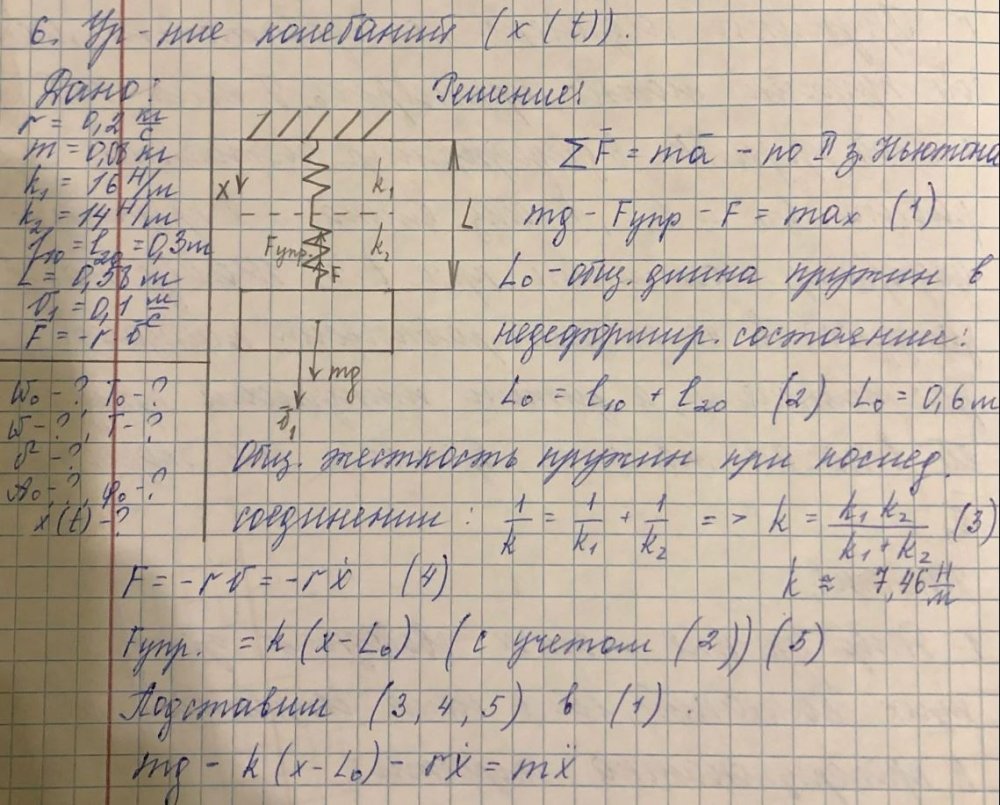 6. Ур-ние колебаний (x(t)).
Дано:
r = 0,2 кг/с
m = 0,08 кг
k₁ = 16 Н/м
k₂ = 14 Н/м
l₁₀ = l₂₀ = 0,3 м
L = 0,58 м
v̄₁ = 0,1 м/с
F̄ = -r · v̄
ω₀ - ?, T₀ - ?
ω - ?, T - ?
A₀ - ?, φ₀ - ?
x(t) - ?
Решение:
X
k₁
k₂
L
Fупр.
F
mg
v̄₁
ΣF̄ = mā - по II з. Ньютона
mg - Fупр - F = maₓ (1)
L₀ - общ. длина пружин в
недеформир. состоянии:
L₀ = l₁₀ + l₂₀ (2) L₀ = 0,6 м
Общ. жесткость пружин при послед.
соединении: 1/k = 1/k₁ + 1/k₂ => k = k₁k₂/(k₁+k₂) (3)
F = -rv = -rẋ (4) k ≈ 7,46 Н/м
Fупр. = k(x-L₀) (с учетом (2)) (5)
Подставим (3, 4, 5) в (1):
mg - k(x-L₀) - rẋ = mẍ